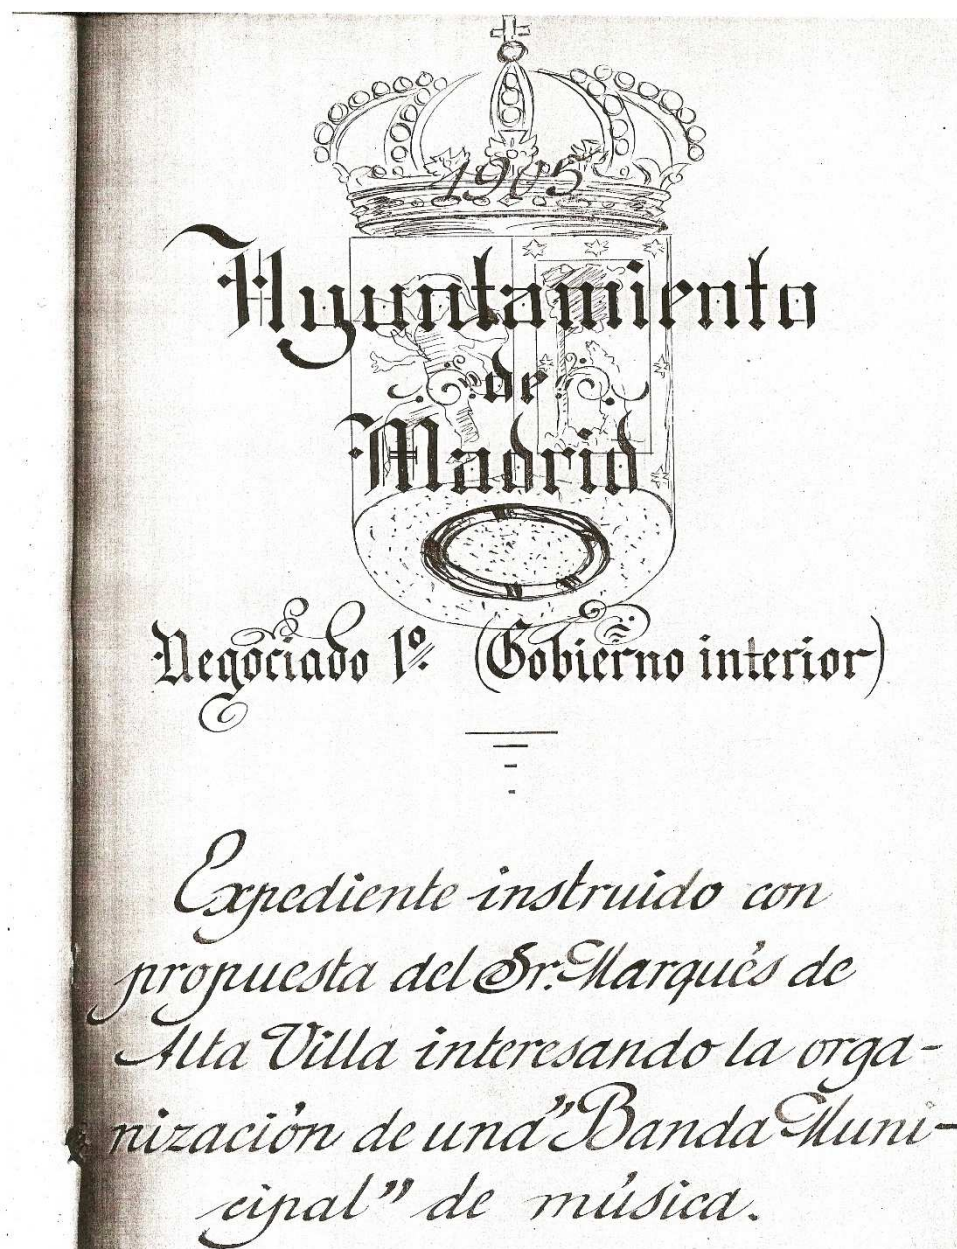 1905
Ayuntamiento
de
Madrid
Negociado 1º. (Gobierno interior)
Expediente instruido con
propuesta del Sr. Marqués de
Alta Villa interesando la orga-
nización de una "Banda Muni-
cipal" de música.